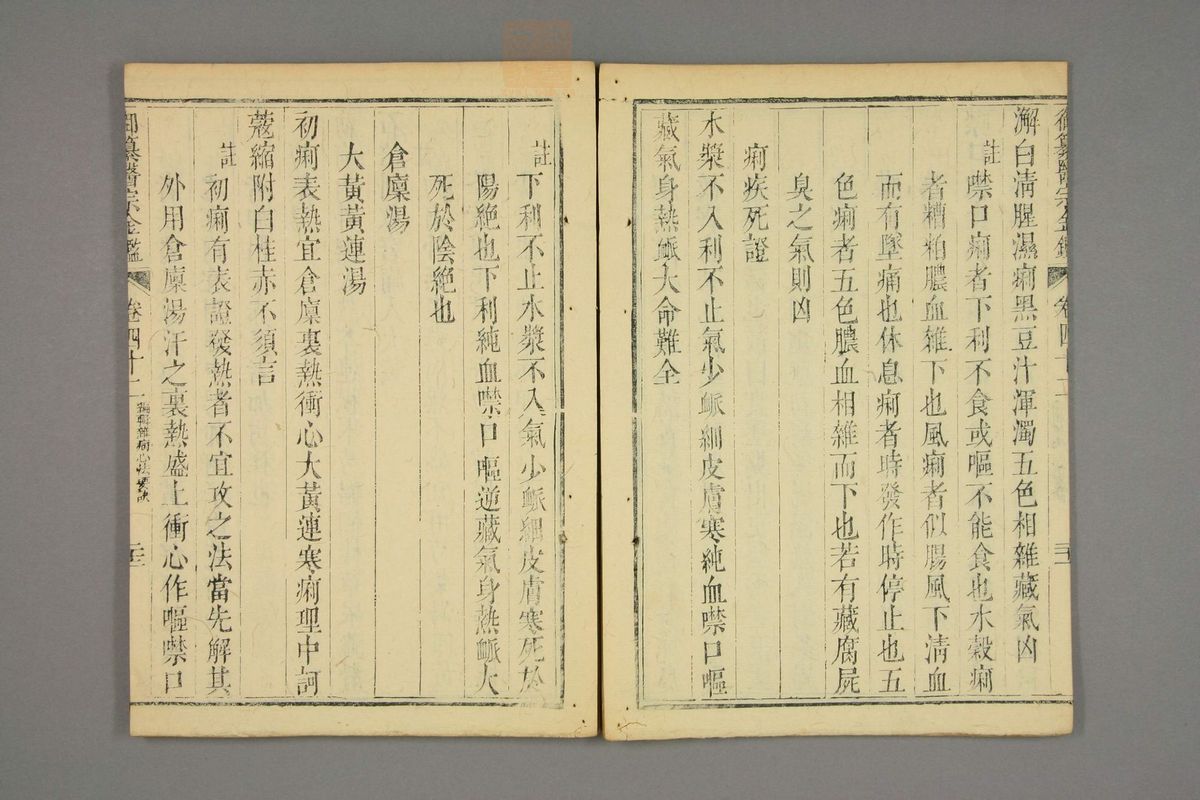 御纂醫宗金鑑 卷四十二
澥白清腥濕痢黑豆汁渾濁五色相雜藏氣凶
註 噤口痢者下利不食或嘔不能食也水穀痢
者糟粕膿血雜下也風痢者似腸風下清血
而有墜痛也休息痢者時發作時停止也五
色痢者五色膿血相雜而下也若有藏腐屍
臭之氣則凶
痢疾死證
水漿不入利不止氣少脈細皮膚寒純血噤口嘔
藏氣身熱脈大命難全
註 下利不止水漿不入氣少脈細皮膚寒死於
陽絕也下利純血噤口嘔逆藏氣身熱脈大
死於陰絕也
倉廩湯
大黃黃連湯
初痢表熱宜倉廩裏熱衝心大黃連寒痢理中訶
蔻縮附白桂赤不須言
註 初痢有表證發熱者不宜攻之法當先解其
外用倉廩湯汗之裏熱盛上衝心作嘔噤口
御纂醫宗金鑑 卷四十二 編輯雜病心法要訣 二三